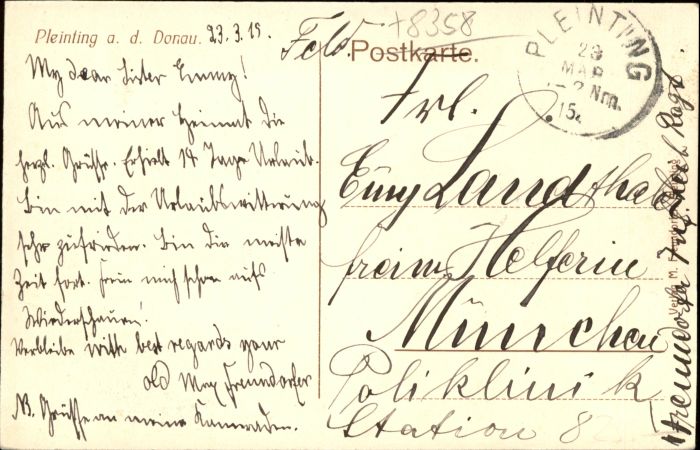 Pleinting a. d. Donau. 23.3.15.
My dear sister Emmy!
Aus meiner Heimat die
herzl. Grüsse. Erhielt 14 Tage Urlaub.
Bin mit der Urlaubswitterung
sehr zufrieden. Bin die meiste
Zeit fort. Freu mich schon aufs
Wiederschauen!
Verbleibe with best regards your
old Max Freundorfer
NB. Grüsse an meine Kameraden.
+8358
Feld Postkarte.
PLEINTING
23
MAR
2 Nm.
15.
Frl.
Emy Landthal
freiw. Helferin
München
Poliklinik
Station 8
Verlag M.
Freundorfer